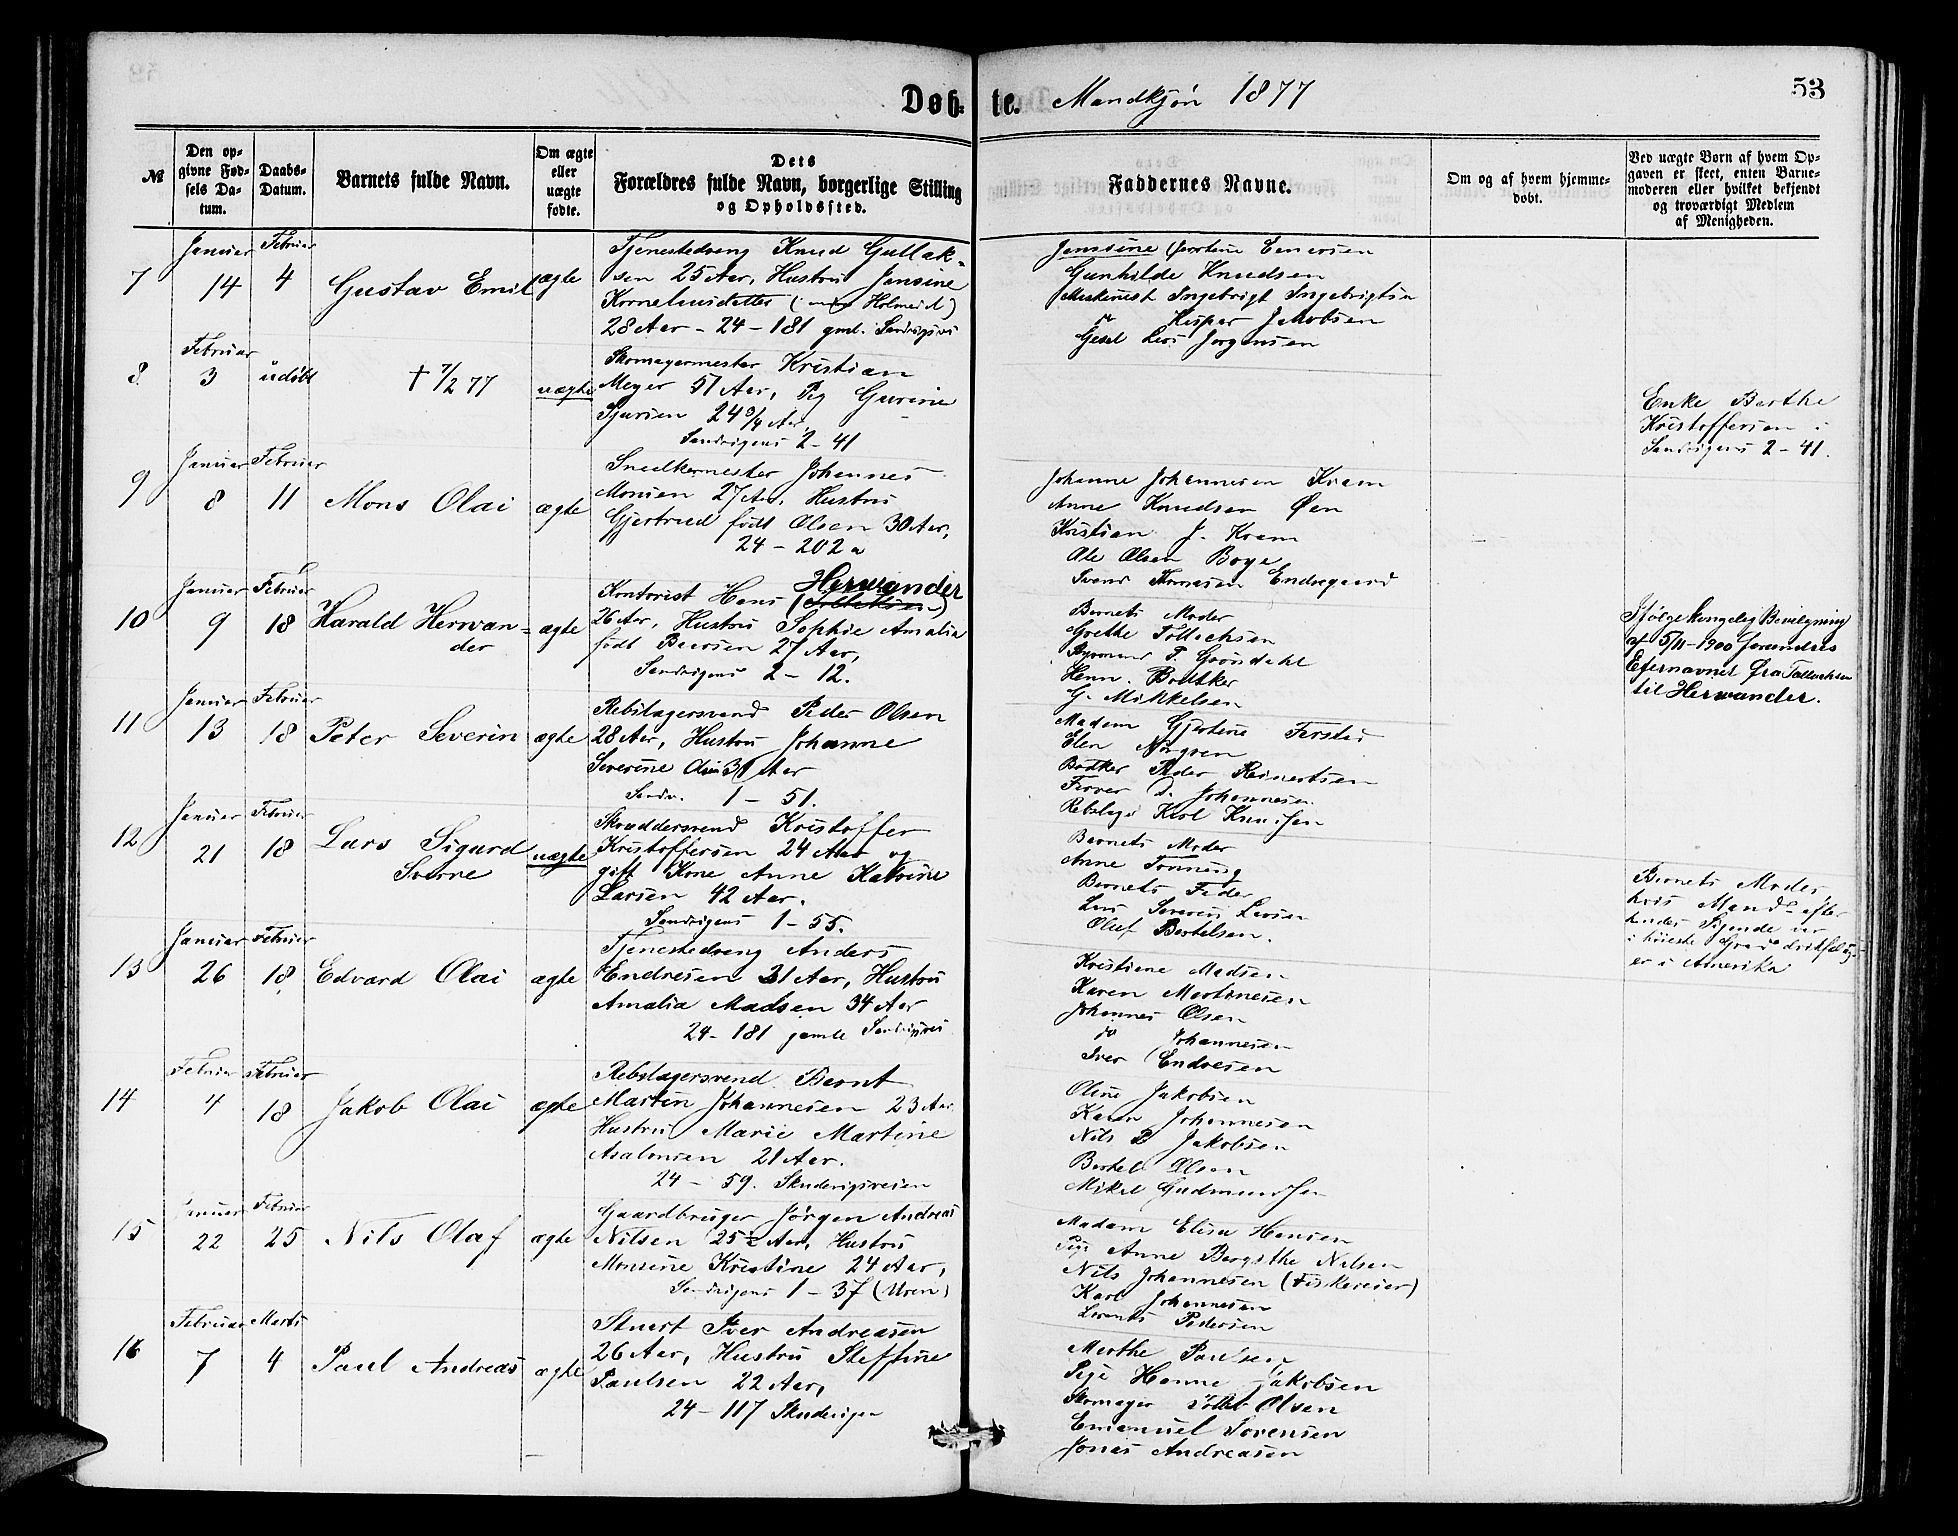 Døb- te. Mandkjøn 1877
53
№
Den op-
givne Fød-
sels Da-
tum.
Daabs-
Datum.
Barnets fulde Navn.
Om ægte
eller
uægte
fødte.
Dets
Forældres fulde Navn, borgerlige Stilling
og Opholdssted.
Faddernes Navne.
Om og af hvem hjemme-
døbt.
Ved uægte Børn af hvem Op-
gaven er skeet, enten Barne-
moderen eller hvilket bekjendt
og troværdigt Medlem
af Menigheden.
7
Januar
14
Februar
4
Gustav Emil
ægte
Tjenestedreng Knud Gullak-
sen 25 Aar, Hustru Jansine
Kornelmisdatter ( Holmeid)
28 Aar - 24 - 181 gml. Sandvigsvei
Jansine Enersen
Gunhilde Knudsen
Ingebrigt Ingebrigtsen
Kasper Jakobsen
Lars Jørgensen
8
Februar
3
udøbt
† 7/2 77
uægte
Skomagermester Kristian
Meyer 51 Aar, Pig Gurine
Sjursen 24 3/4 Aar
Sandvigens 2 - 41
Enke Berthe
Kristoffersen i
Sandvigens 2 - 41.
9
Januar
8
Februar
11
Mons Olai
ægte
Snedkermester Johannes
Monsen 27 Aar, Hustru
Gjertrud født Olsen 30 Aar,
24 - 202 a
Johanne Johannesen Kvam
Anne Knudsen Øen
Kristian J. Kvam
Ole Olsen Boge
Svend Endregaard
10
Januar
9
Februar
18
Harald Herwan-
der
ægte
Kontorist Hans Herwander
26 Aar, Hustru Sophie Amalia
født Beersen 27 Aar,
Sandvigens 2 - 12.
Barnets Moder
Grethe Tollachsen
P. Grøndahl
Henn. Bødtker
G. Mikkelsen
Ifølge kongelig Bevilgning
af 5/11-1900 forandres
Efternavnet fra Tallachsen
til Herwander.
11
Januar
13
Februar
18
Peter Severin
ægte
Rebslagersvend Peder Olsen
28 Aar, Hustru Johanne
Severine 31 Aar
Sandv. 1 - 51.
Madam Gjertine
Elen Norgren
Bødker Peder Reinertsen
D. Johannesen
Rebslager Karl Knudsen
12
Januar
21
Februar
18
Lars Sigurd
Sverre
uægte
Skræddersvend Kristoffer
Kristoffersen 24 Aar og
gift Kone Anne Katrine
Larsen 42 Aar.
Sandvigens 1 - 55.
Barnets Moder
Anne Tønning
Barnets Fader
Lars Severin Larsen
Oluf Bertelsen.
Barnets Moder
hvis Mand efter
hendes Sigende var
i høieste Grad drikfældig
er i Amerika
13
Januar
26
Februar
18
Edvard Olai
ægte
Tjenestedreng Anders
Endresen 31 Aar, Hustru
Amalia Madsen 34 Aar
24 - 181 gamle Sandvigsvei
Kristiane Madsen
Karen Martinesen
Johannes Olsen
do Johannesen
Iver Endresen
14
Februar
4
Februar
18
Jakob Olai
ægte
Rebslagersvend Bernt
Martin Johannesen 23 Aar
Hustru Marie Martine
Asalonsen 21 Aar.
24 - 59. Skudevigsveien
Oline Jakobsen
Karen Johannesen
Nils P Jakobsen
Bertel Olsen
Mikel Gudmundsen
15
Januar
22
Februar
25
Nils Olaf
ægte
Gaardbruger Jørgen Andreas
Nilsen 25 Aar, Hustru
Monsine Kristine 24 Aar,
Sandvigens 1 - 37 (Uren)
Madam Elisa Hansen
Pige Anne Bergithe Nilsen
Nils Johannesen (Fiskereier)
Karl Johannesen
Lorents Pedersen
16
Februar
7
Marts
4
Paul Andreas
ægte
Stuert Iver Andreasen
26 Aar, Hustru Steffine
Paulsen 22 Aar,
24 - 117 Skudevigen
Merthe Paulsen
Pige Hanne Jakobsen
Skomager Ole Olsen
Emanuel Sørensen
Jonas Andreasen